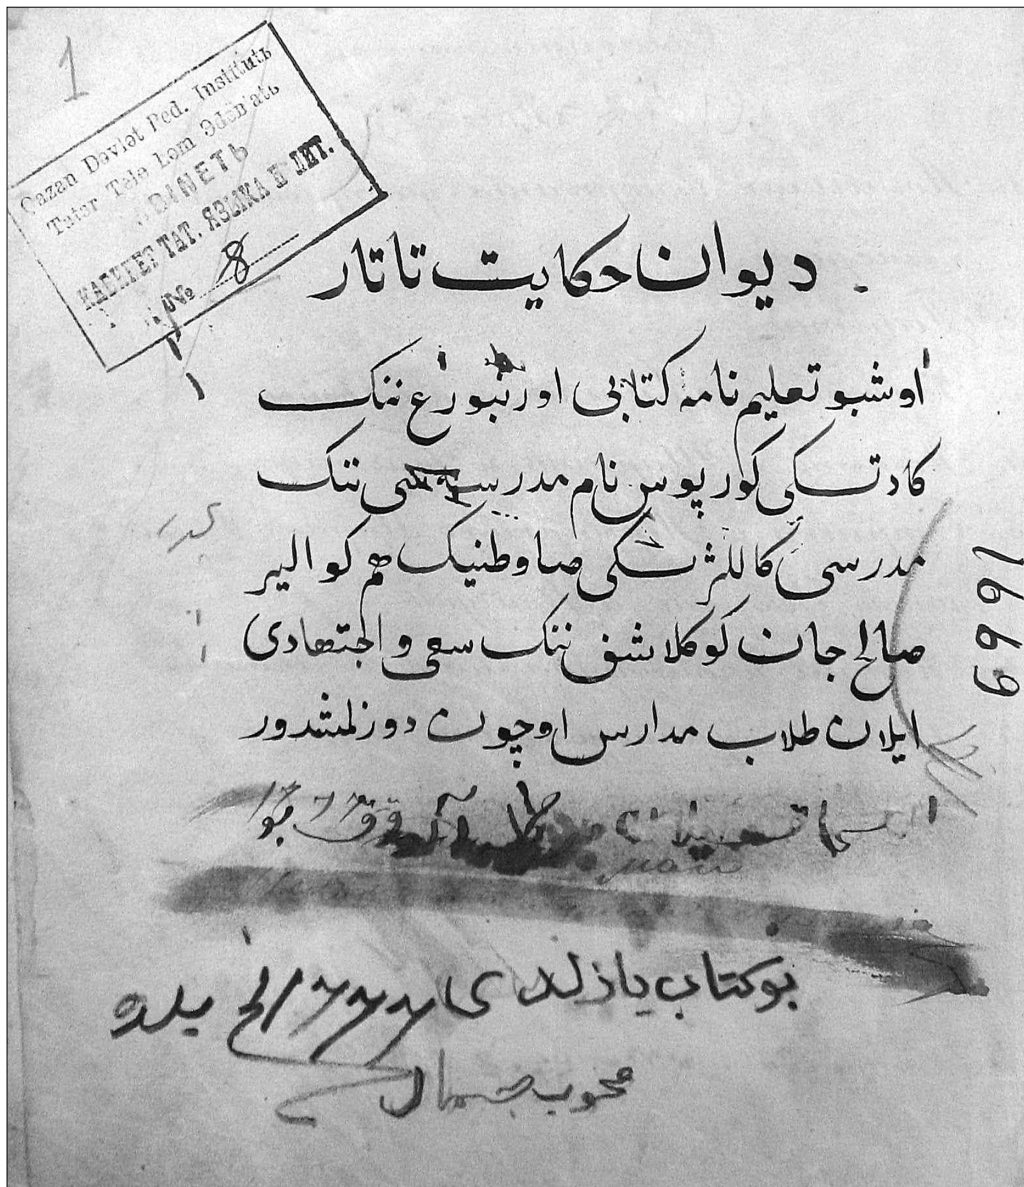 1
Qazan Dəvlət Ped. Institutь
Tatar Tele həm Ədəbiatь
КАБИНЕТ ТАТ. ЯЗЫКА И ЛИТ.
№ 8
ديوان حكايت تاتار
اوشبو تعليم نامه كتابى اورنبورغ ننك
كادتسكى كورپوس نام مدرسه سى ننك
مدرسى كاللژسكى صاوطنيك هم كوالير
صالح جان كوكلاشف ننك سعى و اجتهادى
ايلان طلاب مدارس اوچون دوزلمشدور
بو كتاب يازلدى ١٢٧٧ نچى يلده
محبوب جمال
16699